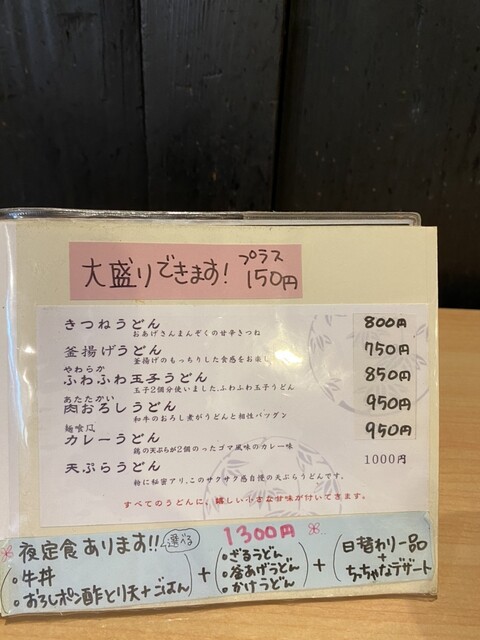 大盛りできます! プラス150円
きつねうどん 800円
おあげさんまんぞくの甘辛きつね
釜揚げうどん 750円
釜揚げのもっちりした食感をお楽し
やわらか
ふわふわ玉子うどん 850円
玉子2個分使いました。ふわふわ玉子うどん
あたたかい
肉おろしうどん 950円
和牛のおろし煮がうどんと相性バツグン
麺喰風
カレーうどん 950円
鶏の天ぷらが2個のったゴマ風味のカレー味
天ぷらうどん 1000円
粉に秘密アリ。このサクサク感自慢の天ぷらうどんです。
すべてのうどんに、嬉しい小さな甘味が付いてきます。
夜定食あります!! 選べる 1300円
・牛丼
・おろしポン酢とり天+ごはん
+
・ざるうどん
・釜あげうどん
・かけうどん
+
日替わり一品
+
ちっちゃなデザート